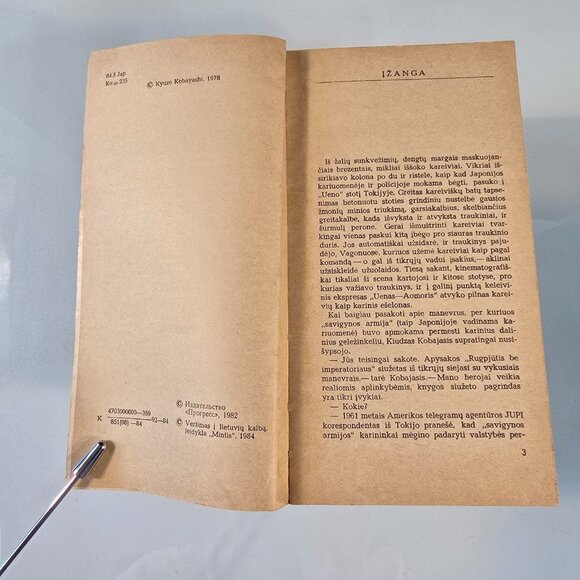 84.5 Jap
Ko 235
© Kyuzo Kobayashi, 1978
© Издательство
«Прогресс», 1982
К 4703000000—359
851(08)—84 92—84
© Vertimas į lietuvių kalbą,
leidykla „Mintis“, 1984
ĮŽANGA
Iš žalių sunkvežimių, dengtų margais maskuojan-
čiais brezentais, mikliai iššoko kareiviai. Vikriai iš-
sirikiavo kolona po du ir ristele, kaip kad Japonijos
kariuomenėje ir policijoje mokama bėgti, pasuko į
„Ueno“ stotį Tokijyje. Greitas kareiviškų batų tapse-
nimas betonuotu stoties grindiniu nustelbė gausios
žmonių minios triukšmą, garsiakalbius, skelbiančius
greitakalbe, kada išvyksta ir atvyksta traukiniai, ir
šurmulį perone. Gerai išmuštrinti kareiviai tvar-
kingai vienas paskui kitą įbėgo pro siauras traukinio
duris. Jos automatiškai užsidarė, ir traukinys paju-
dėjo. Vagonuose, kuriuos užėmė kareiviai kaip pagal
komandą — o gal iš tikrųjų vadui įsakius,— aklinai
užsiskleidė užuolaidos. Tiesą sakant, kinematografiš-
kai tiksliai ši scena kartojosi ir kitose stotyse, pro
kurias važiavo traukinys, ir į galinį punktą keleivi-
nis ekspresas „Uenas—Aomoris“ atvyko pilnas karei-
vių kaip karinis ešelonas.
Kai baigiau pasakoti apie manevrus, per kuriuos
„savigynos armija“ (taip Japonijoje vadinama ka-
riuomenė) buvo apmokama permesti karinius dali-
nius geležinkeliu, Kiudzas Kobajasis supratingai nu-
sišypsojo.
— Jūs teisingai sakote. Apysakos „Rugpjūtis be
imperatoriaus“ siužetas iš tikrųjų siejasi su vykusiais
manevrais,— tarė Kobajasis.— Mano herojai veikia
realiomis aplinkybėmis, knygos siužeto pagrindas
yra tikri įvykiai.
— Kokie?
— 1961 metais Amerikos telegramų agentūros JUPI
korespondentas iš Tokijo pranešė, kad „savigynos
armijos“ karininkai mėgino padaryti valstybės per-
3